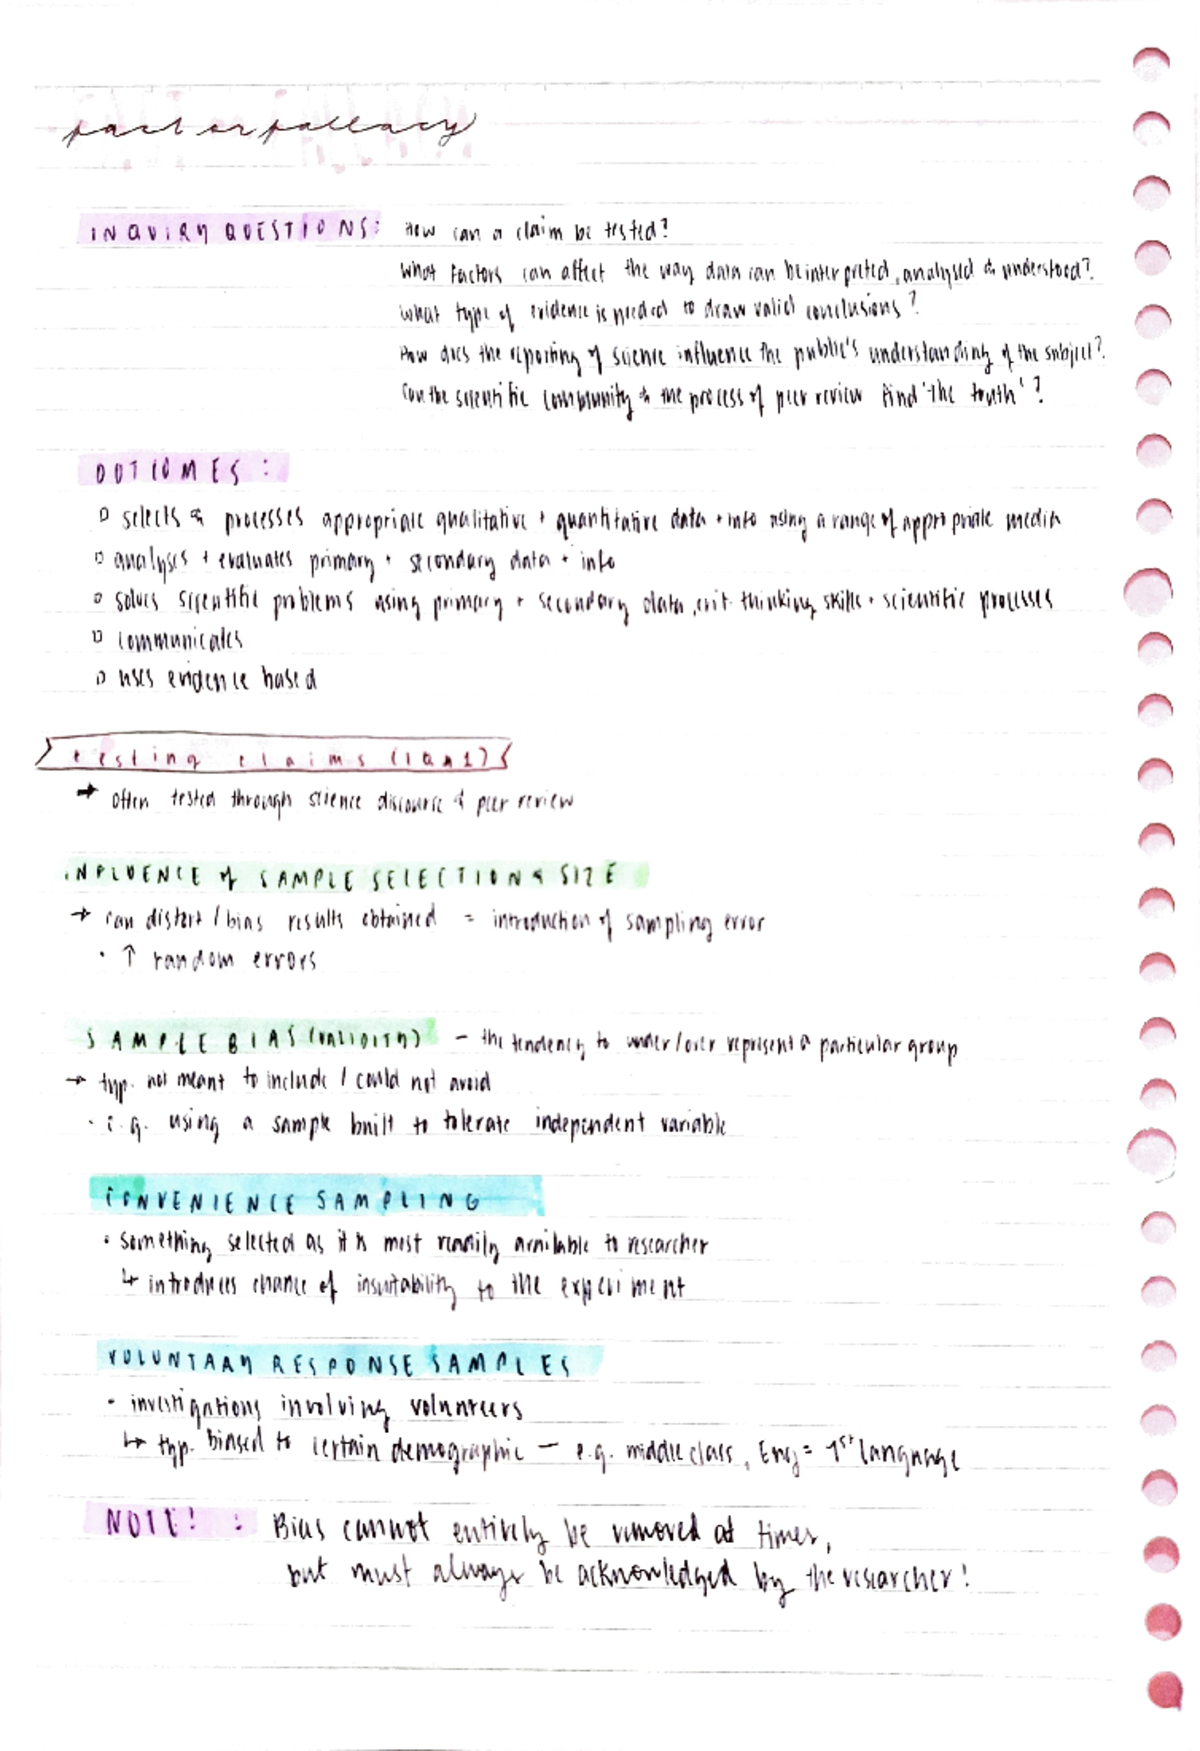 fact or fallacy
INQUIRY QUESTIONS: How can a claim be tested?
What factors can affect the way data can be interpreted, analysed & understood?
What type of evidence is needed to draw valid conclusions?
How does the reporting of science influence the public's understanding of the subject?
Can the scientific community & the process of peer review find 'the truth'?
OUTCOMES:
selects & processes appropriate qualitative + quantitative data + info using a range of appropriate media
analyses + evaluates primary + secondary data + info
solves scientific problems using primary + secondary data, crit. thinking skills + scientific processes
communicates
uses evidence based
testing claims (IQ#1)
→ often tested through science discourse & peer review
INFLUENCE of SAMPLE SELECTION & SIZE
→ can distort / bias results obtained = introduction of sampling error
• ↑ random errors
SAMPLE BIAS (VALIDITY) - the tendency to under/over represent a particular group
→ typ. not meant to include / could not avoid
• e.g. using a sample built to tolerate independent variable
CONVENIENCE SAMPLING
• something selected as it is most readily available to researcher
↳ introduces chance of insuitability to the experiment
VOLUNTARY RESPONSE SAMPLES
- investigations involving volunteers
↳ typ. biased to certain demographic - e.g. middle class, Eng = 1st language
NOTE! : Bias cannot entirely be removed at times,
but must always be acknowledged by the researcher!